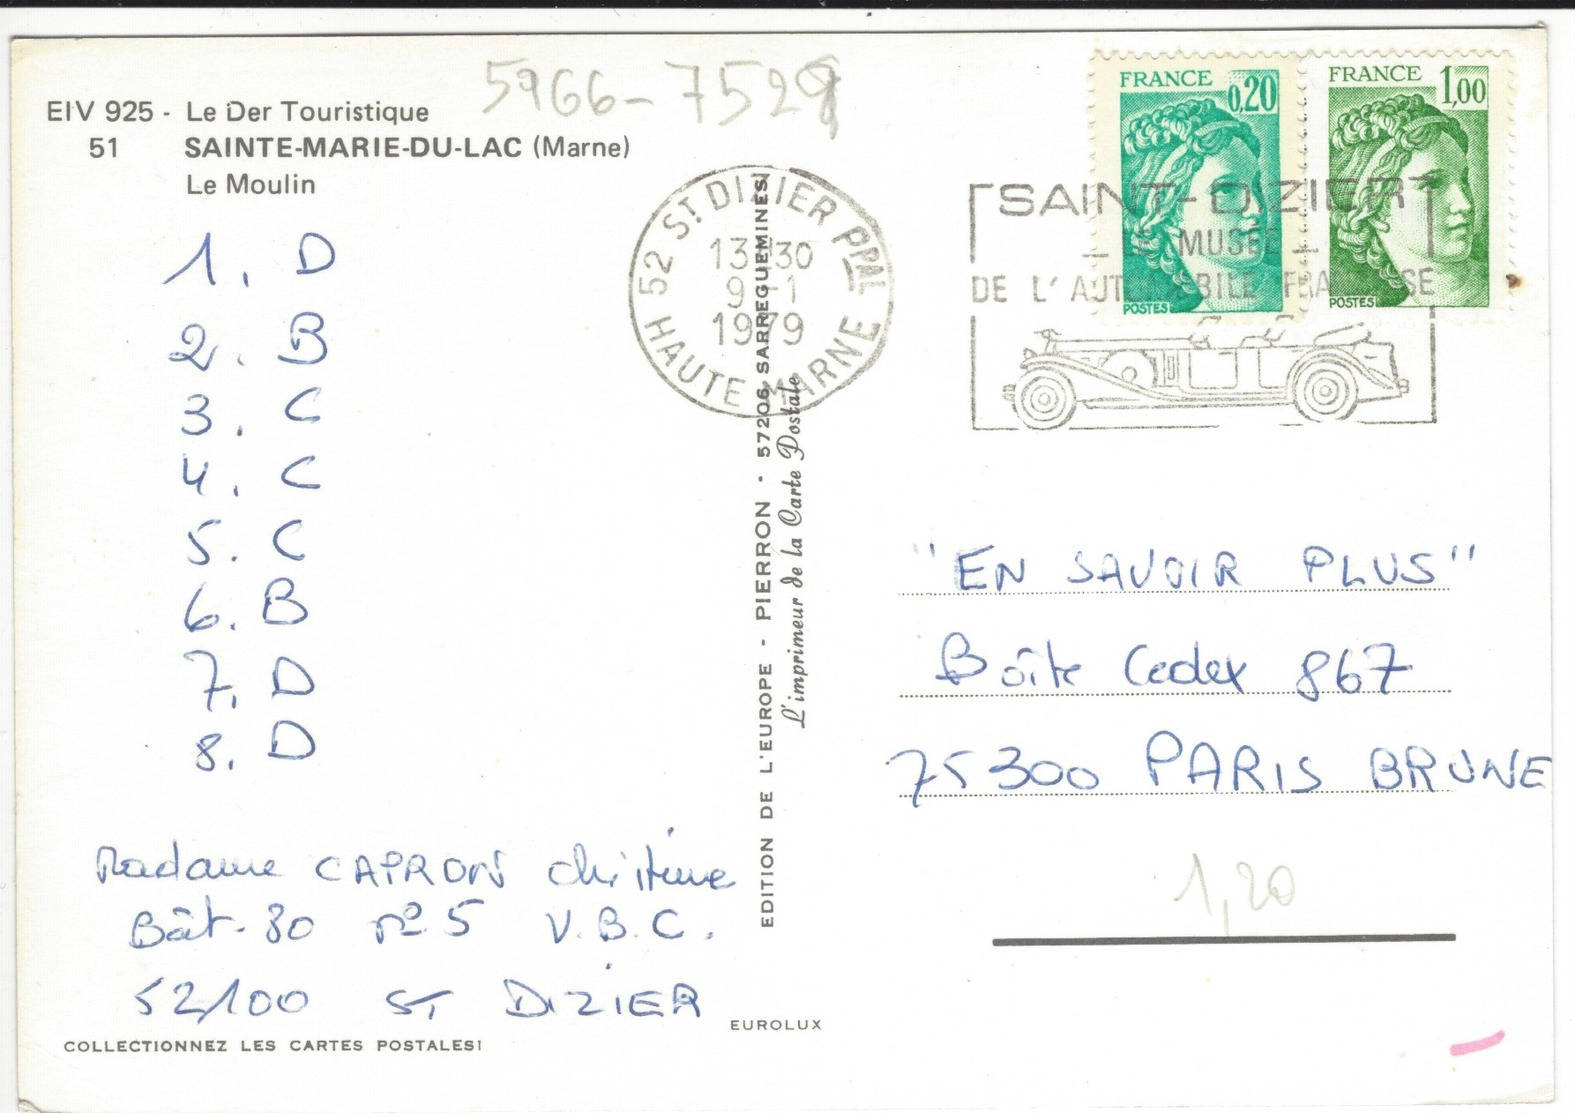 5966-7528
EIV 925 - Le Der Touristique
51 SAINTE-MARIE-DU-LAC (Marne)
Le Moulin
1. D
2. B
3. C
4. C
5. C
6. B
7. D
8. D
Madame CAPRON Christine
Bât-30 n° 5 V.B.C.
52100 ST DIZIER
COLLECTIONNEZ LES CARTES POSTALES!
EDITION DE L'EUROPE - PIERRON - 57206 SARREGUEMINES
L'imprimeur de la Carte Postale
EUROLUX
52 ST DIZIER PPAL
13-30
9-1
1979
HAUTE MARNE
FRANCE 0,20
POSTES
FRANCE 1,00
POSTES
SAINT-DIZIER
MUSÉE
DE L'AUTOMOBILE FRANÇAISE
"EN SAVOIR PLUS"
Boîte Cedex 867
75300 PARIS BRUNE
1,20